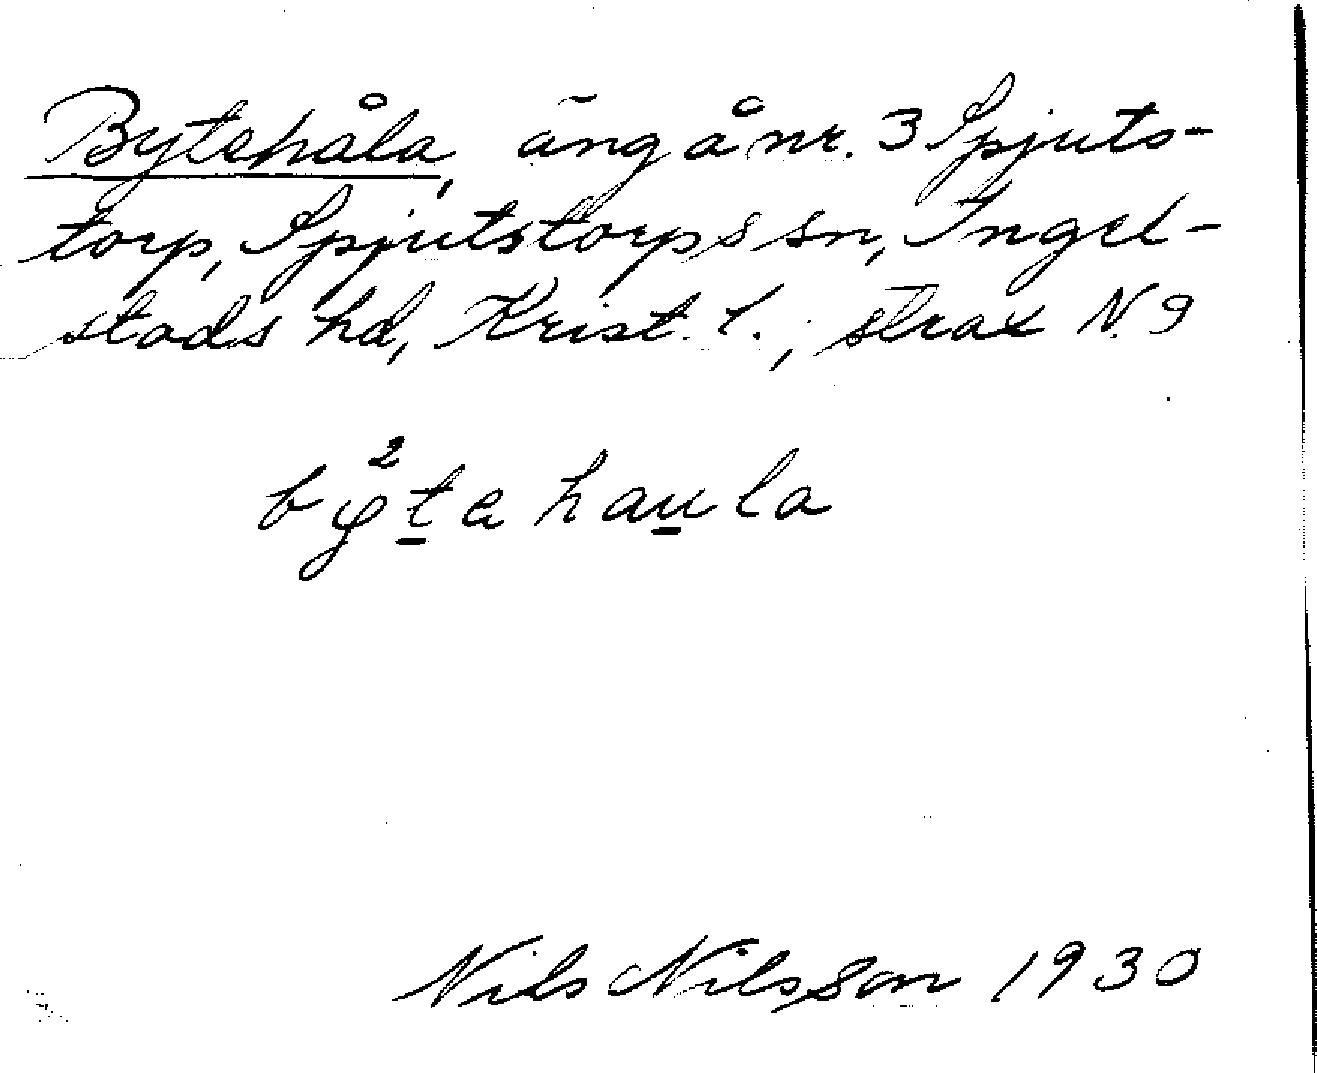 Bytehåla, äng å nr. 3 Spjuts-
torp, Spjutstorps sn, Ingel-
stads hd, Krist. l., strax N. 9
by²ta haula
Nils Nilsson 1930